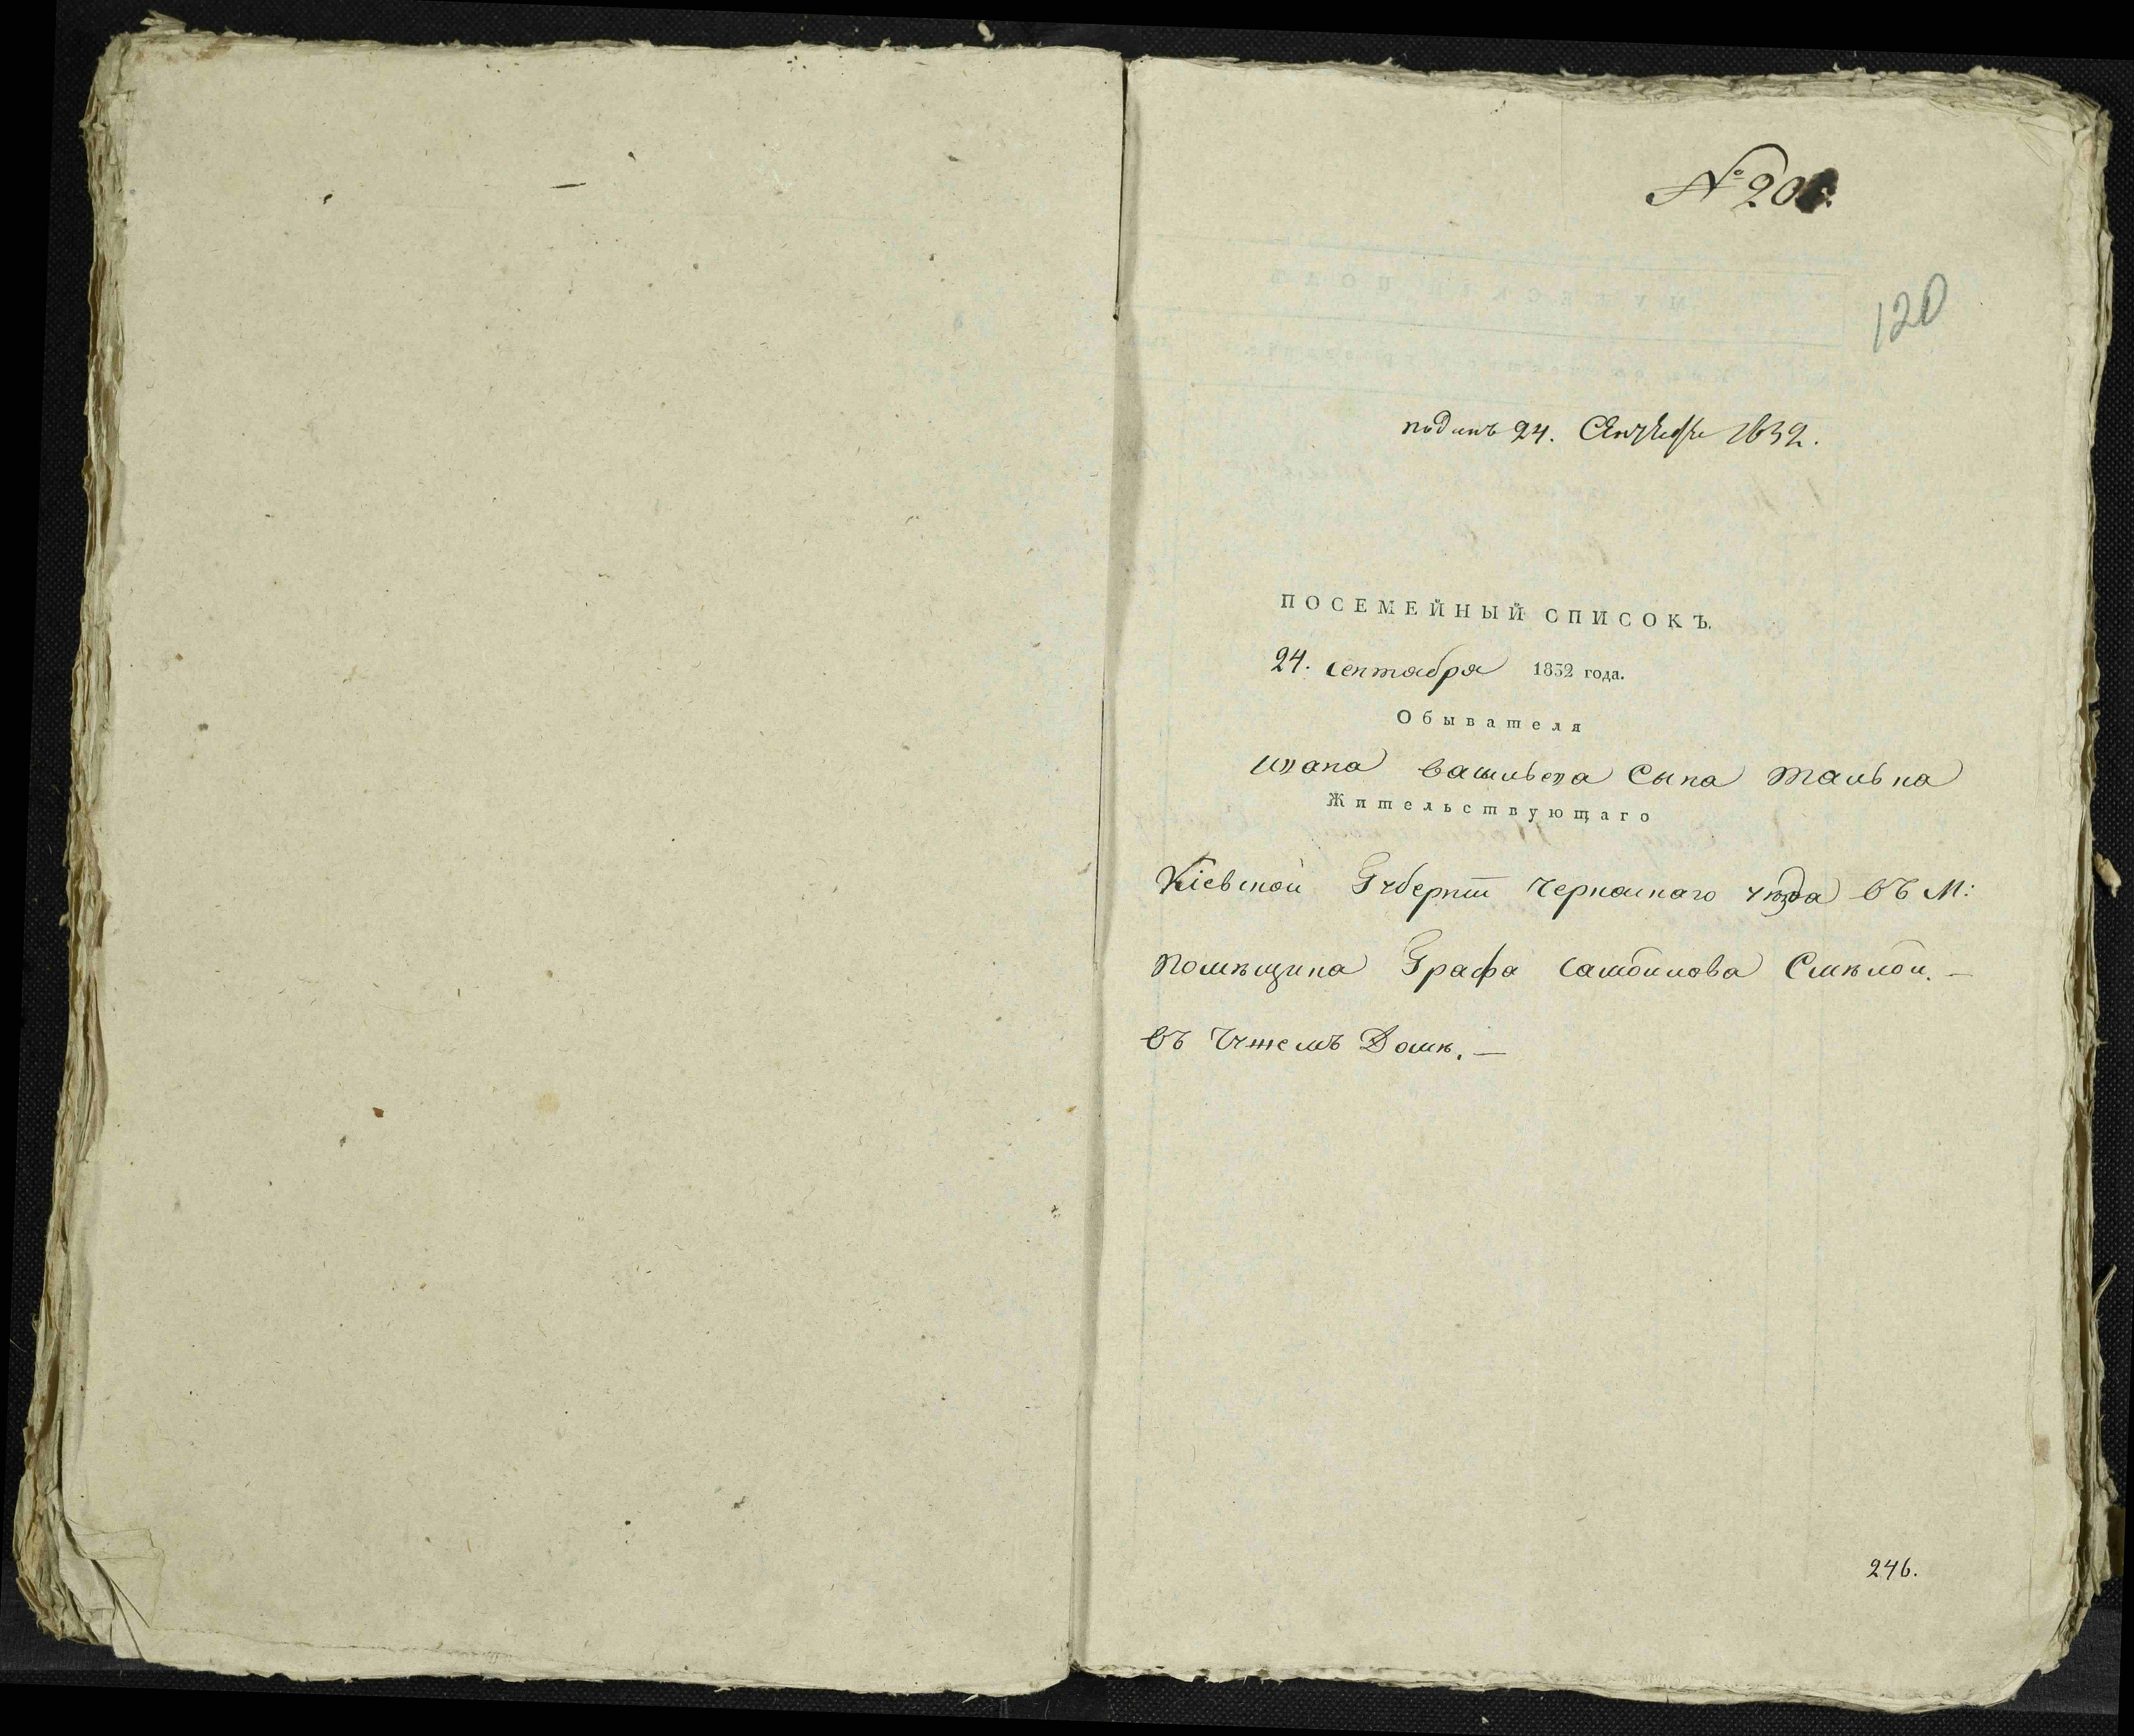 № 206.
120
поданъ 24. Сентября 1832.
ПОСЕМЕЙНЫЙ СПИСОКЪ.
24. сентабря 1832 года.
Обывателя
ивана васильева Сына
Жительствующаго
Кіевской Губерніи черкаскаго уѣзда въ М:
помѣщика Графа самойлова Смѣлой. —
въ Чужемъ Домѣ. —
246.